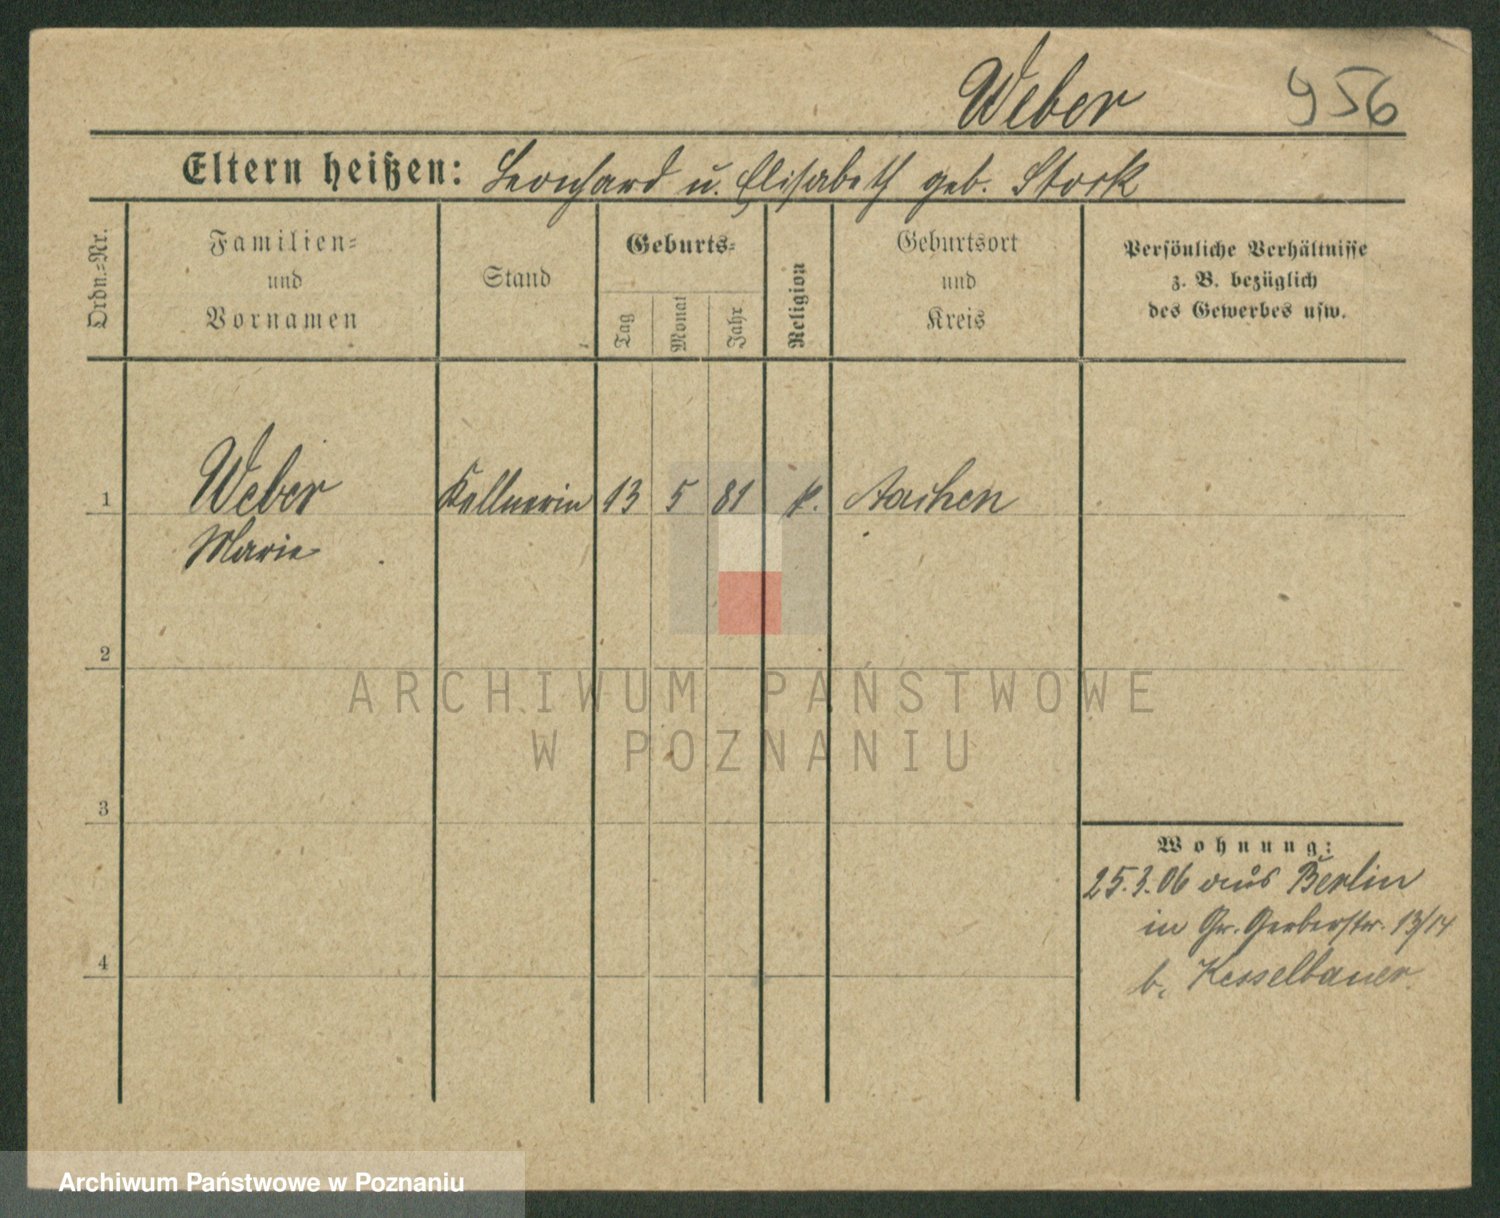 Weber 956
Eltern heißen: Leonhard u. Elisabeth geb. Stork
Ordn.-Nr.
Familien-
und
Vornamen
Stand
Geburts-
Tag
Monat
Jahr
Religion
Geburtsort
und
Kreis
Persönliche Verhältnisse
z. B. bezüglich
des Gewerbes usw.
1 Weber Kellnerin 13 5 81 k. Aachen
Marie
2
ARCHIWUM PAŃSTWOWE
W POZNANIU
3
Wohnung:
25.3.06 aus Berlin
in Gr. Gerberstr. 13/14
4
b. Kesselbauer.
Archiwum Państwowe w Poznaniu